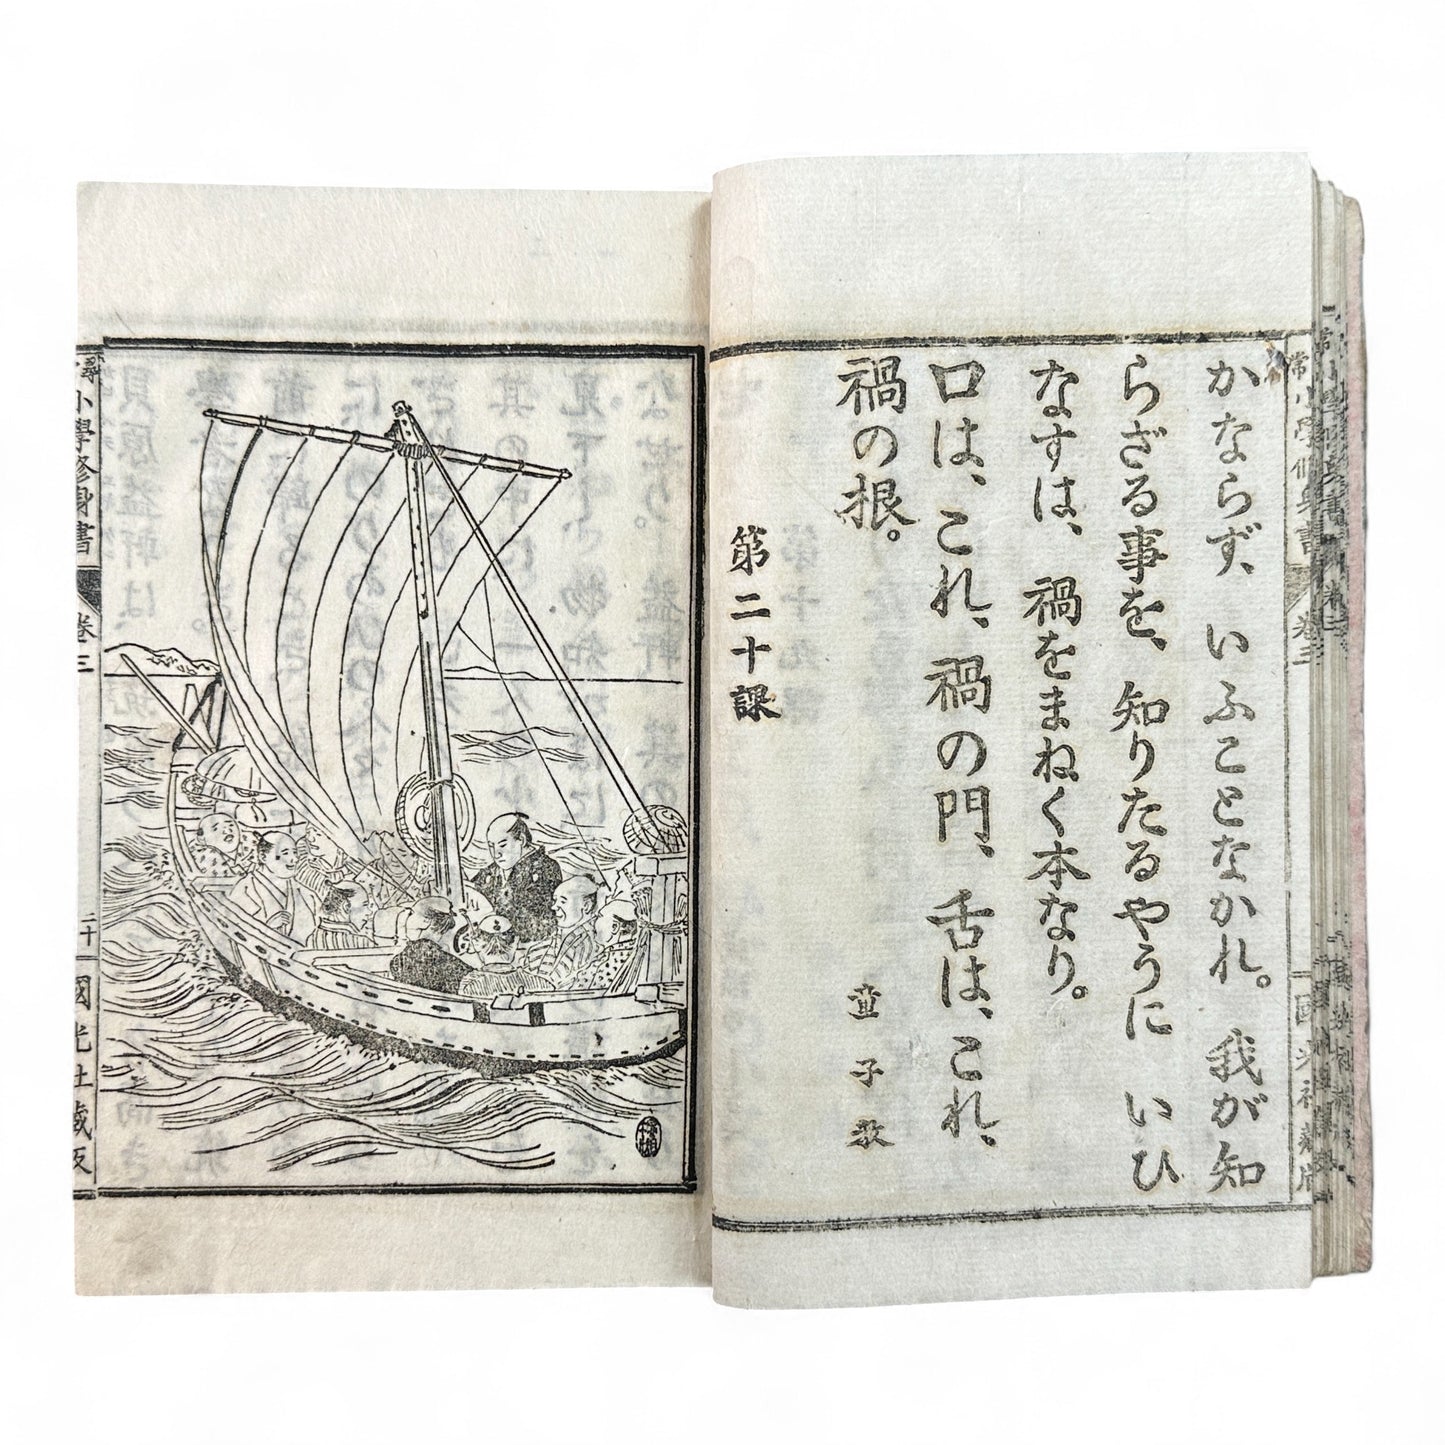 かならず、いふことなかれ。我が知
らざる事を、知りたるやうに いひ
なすは、禍をまねく本なり。
口は、これ、禍の門、舌は、これ、
禍の根。
童子教
第二十課
常小學修身書
卷三
國光社藏版
尋小學修身書
卷三
二十一
國光社藏版